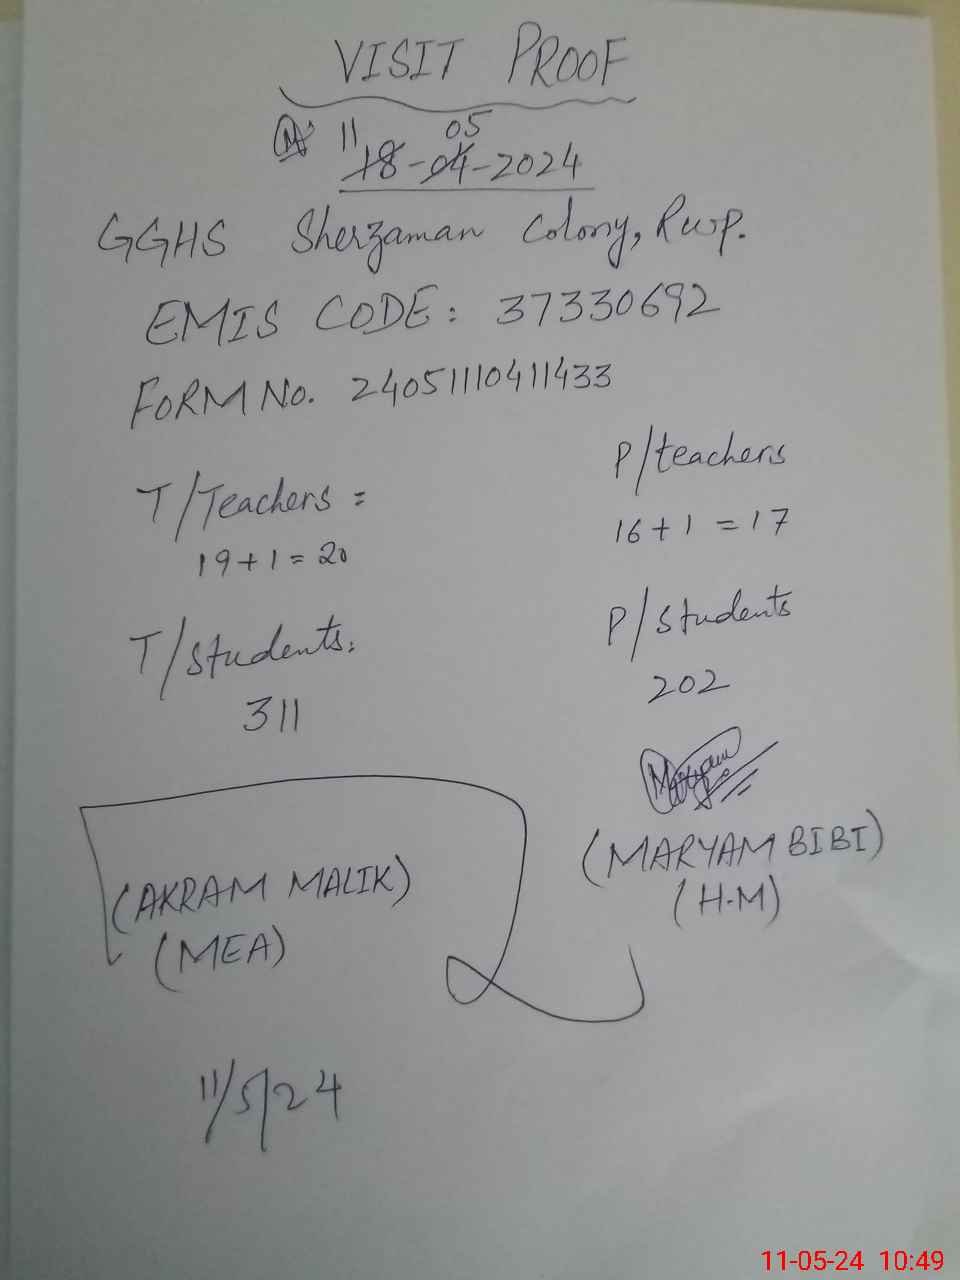 VISIT PROOF
11 05
18-04-2024
GGHS Sherzaman Colony, Rwp.
EMIS CODE: 37330692
FORM No. 24051110411433
T/Teachers =
19+1=20
P/teachers
16+1=17
T/students:
311
P/students
202
Maryam
(MARYAM BIBI)
(H-M)
(AKRAM MALIK)
(MEA)
11/5/24
11-05-24 10:49